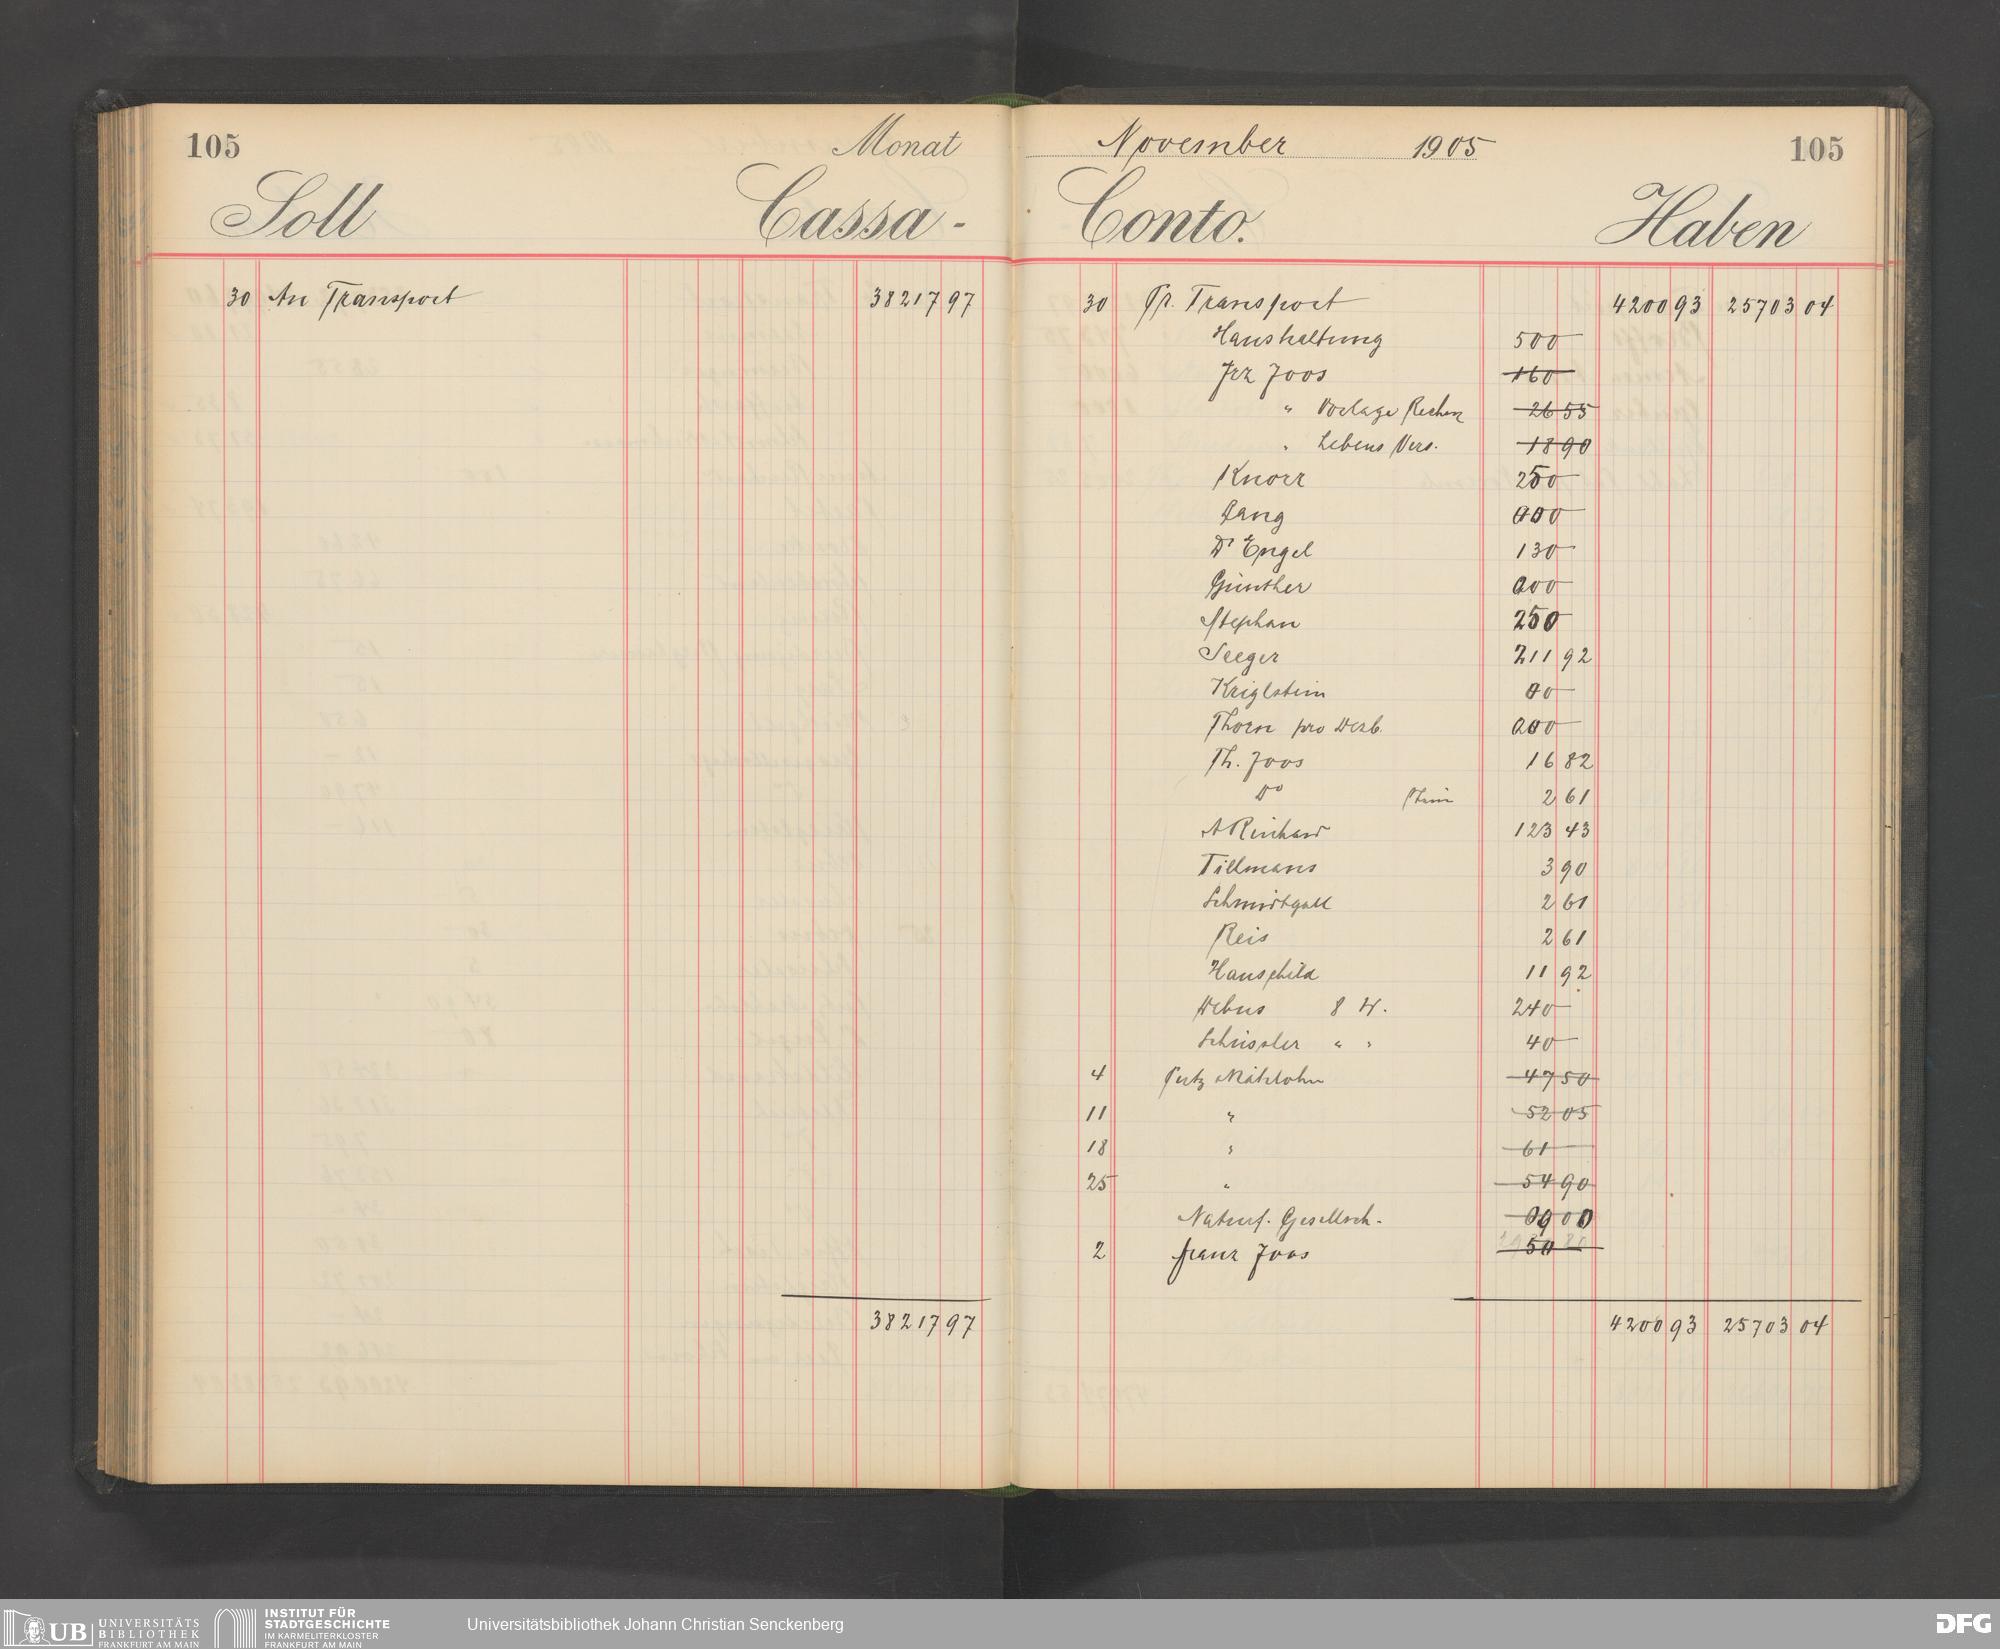 105
Monat
Soll
Cassa -
30 An Transport 38217 97
38217 97
November 1905
105
Conto.
Haben
30 Pr. Transport 4200 93 25703 04
Haushaltung 500
Frz Joos 160
" Vorlage Rechn 26 55
" Lebens Vers. 18 90
Knorr 250
Lang
Dr Engel 130
Günther
Stephan 250
Seeger 211 92
Kriglstein
Thorn pro Dezb.
Th. Joos 16 82
Do 2 61
A Reinhard 123 43
Tillmans 3 90
Schmidtgall 2 61
Reis 2 61
Hauschild 11 92
Debus 8 W. 240
Schüssler " " 40
4 Putz 47 50
11 " 52 05
18 " 61
25 " 54 90
Naturf. Gesellsch.
2 Franz Joos 50
4200 93 25703 04
UB UNIVERSITÄTS
BIBLIOTHEK
FRANKFURT AM MAIN
INSTITUT FÜR
STADTGESCHICHTE
IM KARMELITERKLOSTER
FRANKFURT AM MAIN
Universitätsbibliothek Johann Christian Senckenberg
DFG